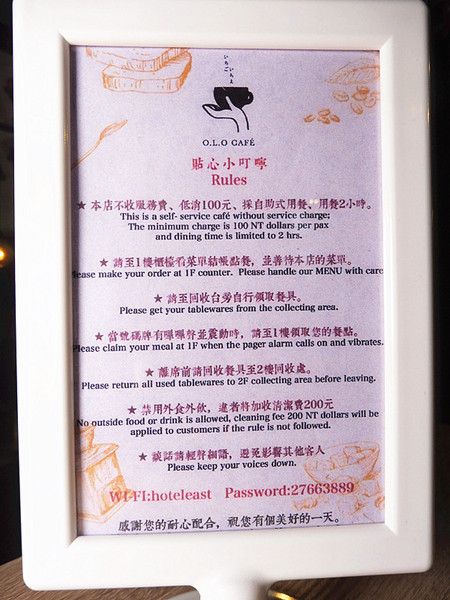 いちごいちえ
O.L.O CAFÉ
貼心小叮嚀
Rules
★ 本店不收服務費、低消100元、採自助式用餐、用餐2小時。
This is a self- service café without service charge;
The minimum charge is 100 NT dollars per pax
and dining time is limited to 2 hrs.
★ 請至1樓櫃檯看菜單結帳點餐，並善待本店的菜單。
Please make your order at 1F counter. Please handle our MENU with care
★ 請至回收台旁自行領取餐具。
Please get your tablewares from the collecting area.
★ 當號碼牌有嗶嗶聲並震動時，請至1樓領取您的餐點。
Please claim your meal at 1F when the pager alarm calls on and vibrates.
★ 離席前請回收餐具至2樓回收處。
Please return all used tablewares to 2F collecting area before leaving.
★ 禁用外食外飲，違者將加收清潔費200元
No outside food or drink is allowed, cleaning fee 200 NT dollars will be
applied to customers if the rule is not followed.
★ 談話請輕聲細語，避免影響其他客人
Please keep your voices down.
WI-FI:hoteleast Password:27663889
感謝您的耐心配合，祝您有個美好的一天。